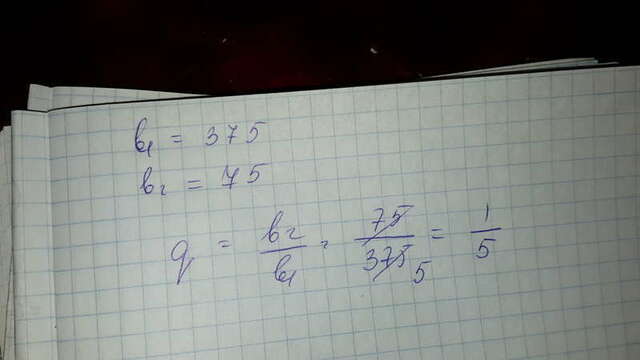 b₁ = 375
b₂ = 75
q = b₂/b₁ = 75/375 5 = 1/5